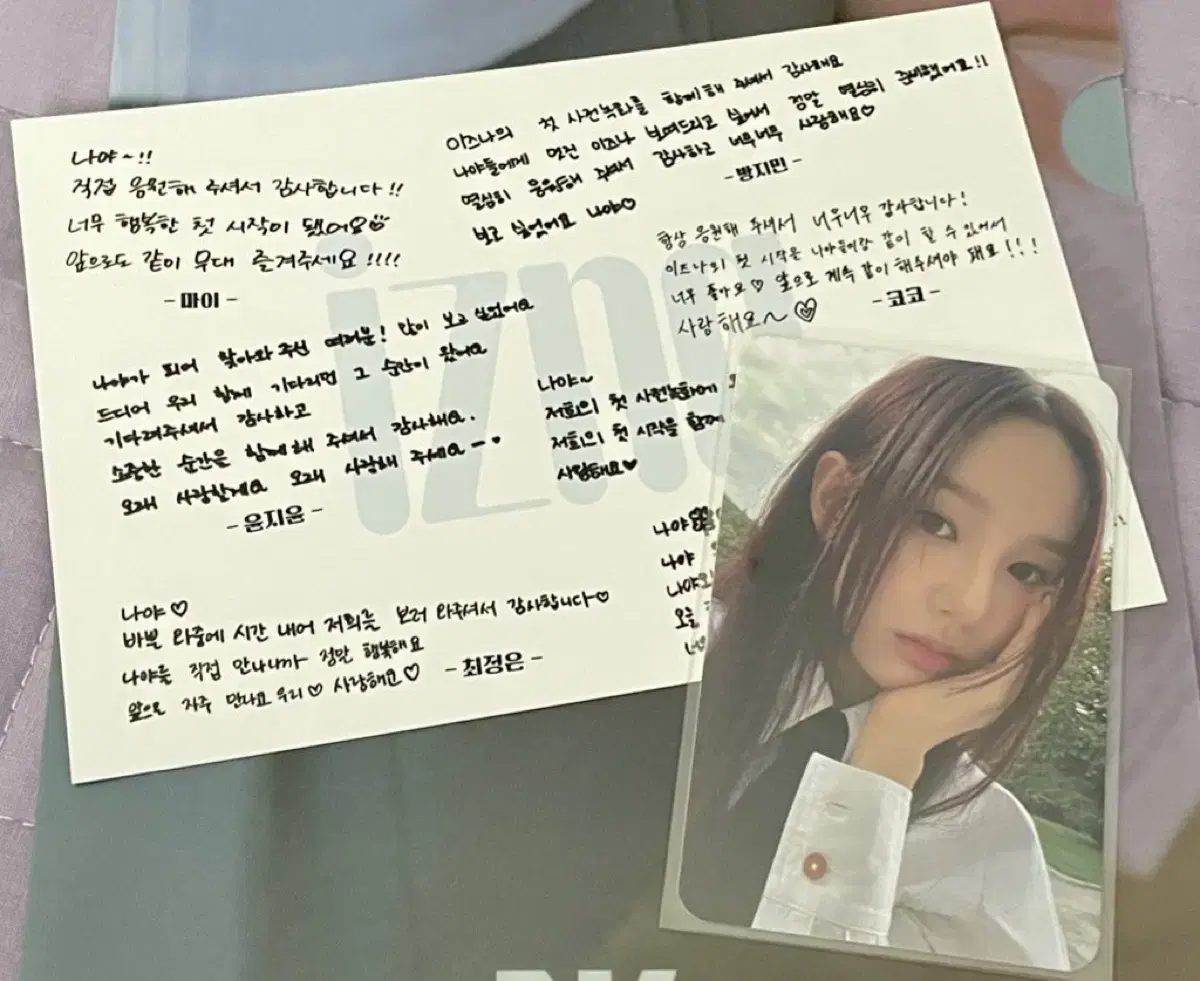 나야~!!
직접 응원해 주셔서 감사합니다!!
너무 행복한 첫 시작이 됐어요
앞으로도 같이 무대 즐겨주세요!!!!
-마이-
이즈나의 첫 사전녹화를 함께해 주셔서 감사해요
나야들에게 멋진 이즈나 보여드리고 싶어서 정말 열심히 준비했어요!!
열심히 응원해 주셔서 감사하고 너무너무 사랑해요♡
보고 싶었어요 나야♡
-방지민-
항상 응원해 주셔서 너무너무 감사합니다!
이즈나의 첫 시작을 나야들이랑 같이 할 수 있어서
너무 좋아요♡ 앞으로 계속 같이 해주셔야 돼요!!!
사랑해요~♡
-코코-
나야가 되어 찾아와 주신 여러분! 많이 보고 싶었어요
드디어 우리 함께 기다리던 그 순간이 왔어요
기다려주셔서 감사하고
소중한 순간을 함께해 주셔서 감사해요.
오래 사랑할게요 오래 사랑해 주세요
-윤지윤-
나야~
저희의 첫 사전녹화에
저희의 첫 시작을 함께
사랑해요♥
나야
나야
오늘
나야♡
바쁜 와중에 시간 내어 저희를 보러 와주셔서 감사합니다♡
나야를 직접 만나니까 정말 행복해요
앞으로 자주 만나고 우리♡ 사랑해요♡
-최정은-
izna